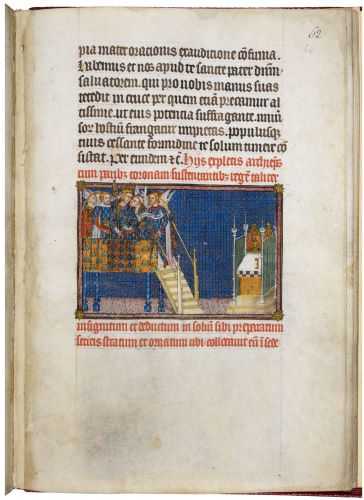 62
pia mater orationis exauditione confirma.
habemus et nos apud te sancte pater dnm
saluatorem. qui pro nobis manus suas
tetendit in cruce per quem etiam precamur al
tissime. ut eius potentia suffragante. uniu
sor hostium frangatur impietas. populusq;
tuus cessante formidine te solum timere con
sistat. per eundem et c. Hijs expletis archieps
cum paribz coronam sustentantibz regem taliter
insignitum et deductum in solium sibi preparatum
sericis stratum et ornatum ubi collocauit eum in sede